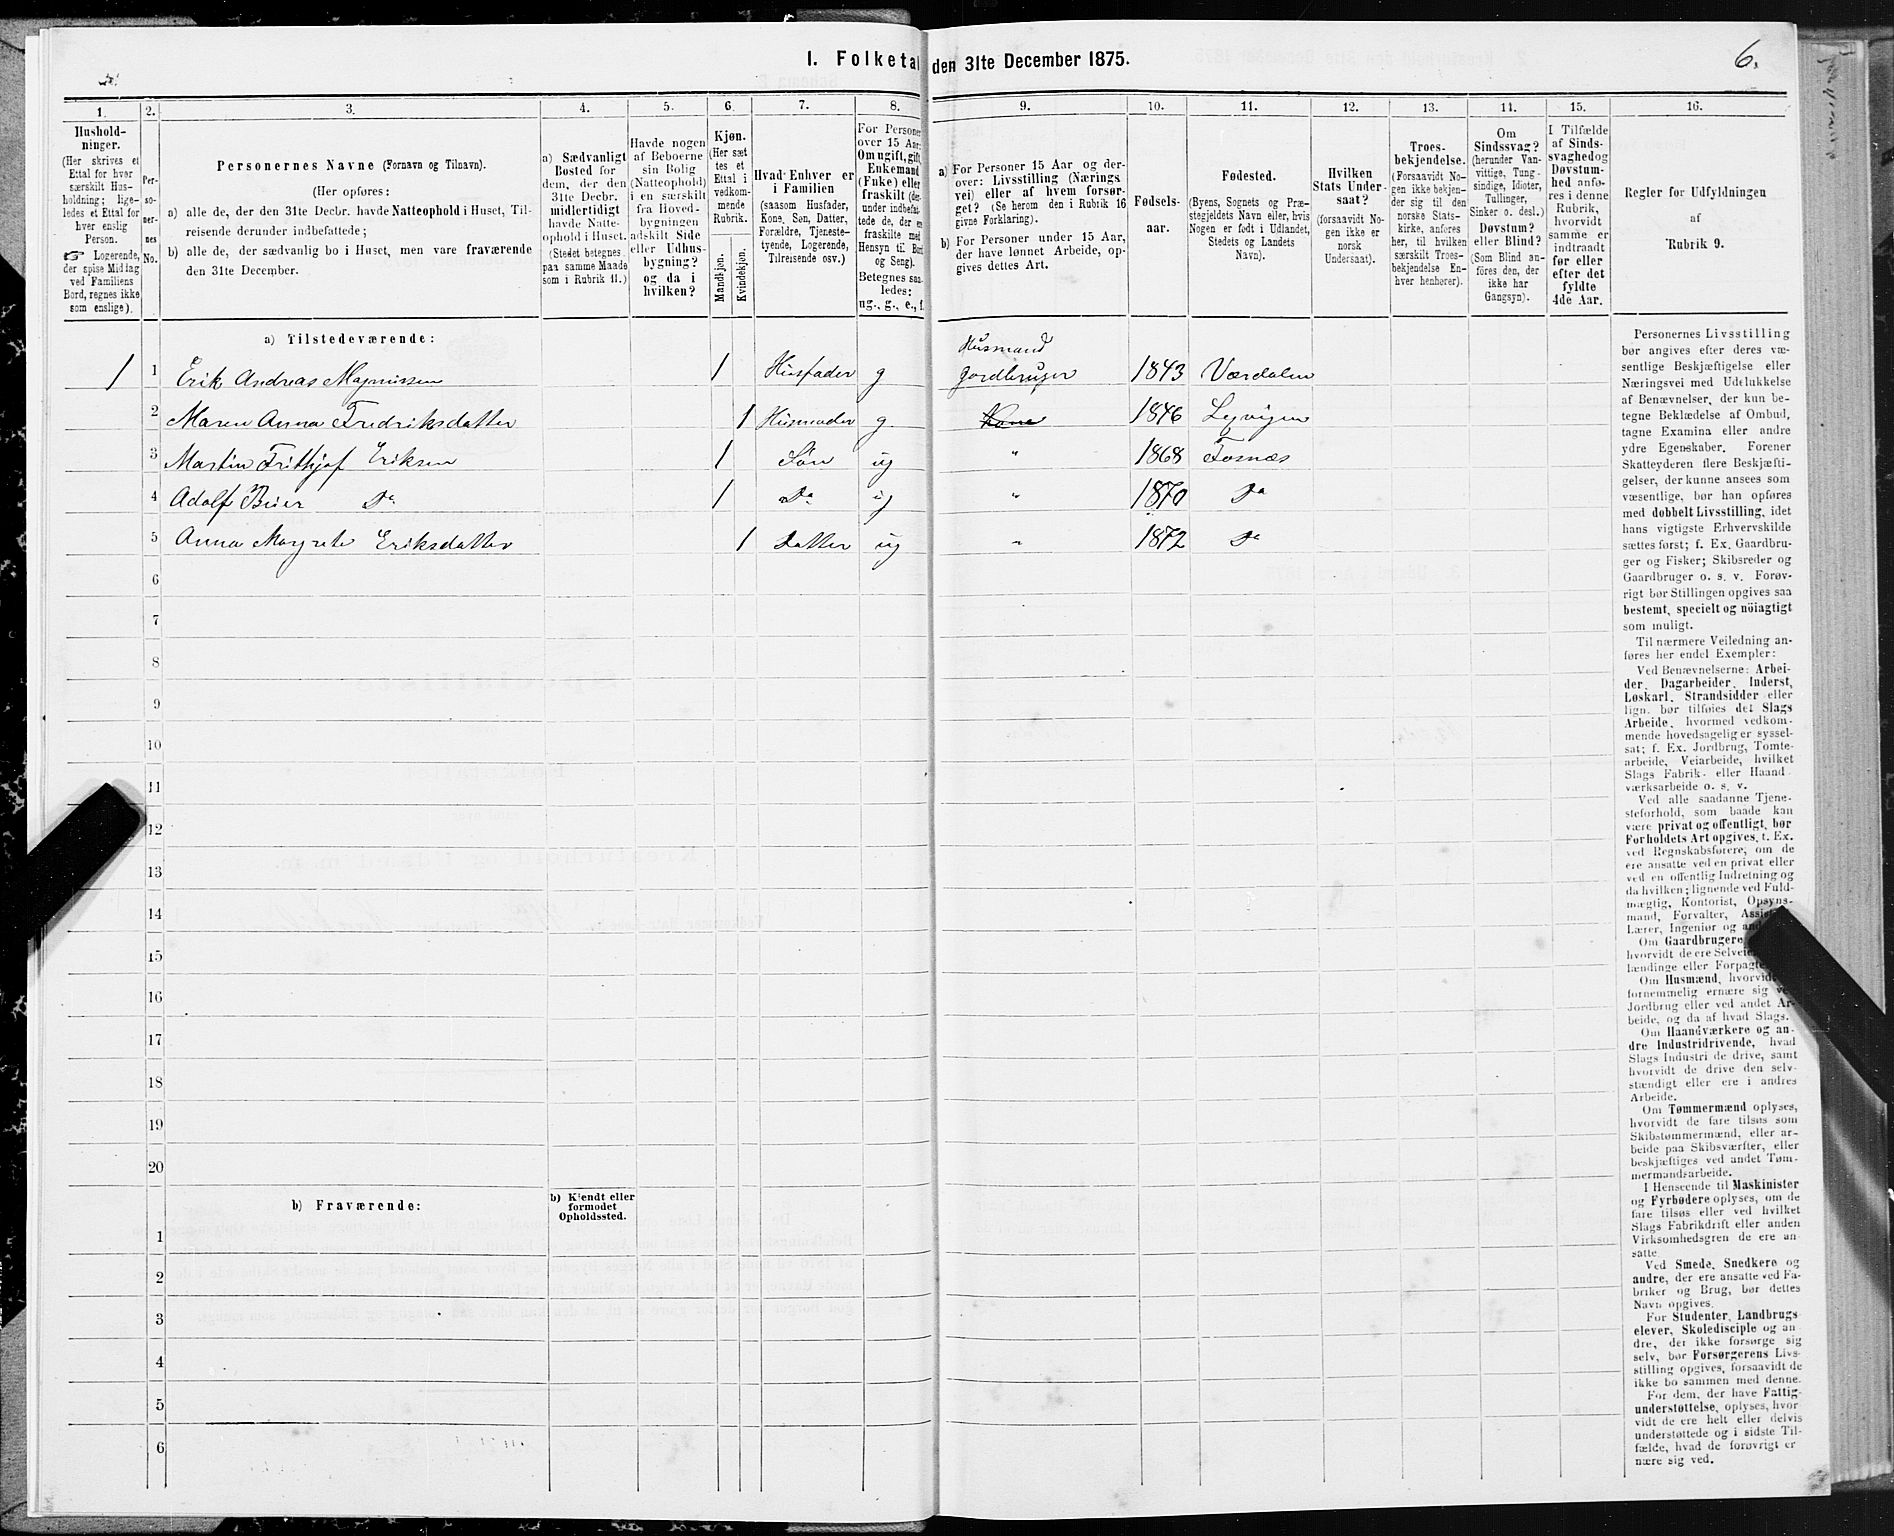 I. Folketal den 31te December 1875.
6.
1. 2. 3. 4. 5. 6. 7. 8. 9. 10. 11. 12. 13. 14. 15. 16.
Hushold-
ninger.
(Her skrives et
Ettal for hver
særskilt Hus-
holdning; lige-
ledes et Ettal for
hver enslig
Person.
☞ Logerende,
der spise Middag
ved Familiens
Bord, regnes ikke
som enslige).
Per-
so-
ner-
nes
No.
Personernes Navne (Fornavn og Tilnavn).
(Her opføres:
a) alle de, der den 31te Decbr. havde Natteophold i Huset, Til-
reisende derunder indbefattede;
b) alle de, der sædvanlig bo i Huset, men vare fraværende
den 31te December.
a) Sædvanligt
Bosted for
dem, der den
31te Decbr.
midlertidigt
havde Natte-
ophold i Huset.
(Stedet betegnes
paa samme Maade
som i Rubrik 11.)
Havde nogen
af Beboerne
sin Bolig
(Natteophold)
i en særskilt
fra Hoved-
bygningen
adskilt Side
eller Udhus-
bygning?
og da i
hvilken?
Kjøn.
(Her sæt
tes et
Ettal i
vedkom-
mende
Rubrik.
Mandkjøn.
Kvindekjøn.
Hvad Enhver er
i Familien
(saasom Husfader,
Kone, Søn, Datter,
Forældre, Tjeneste-
tyende, Logerende,
Tilreisende osv.)
For Personer
over 15 Aar:
Om ugift, gift,
Enkemand
(Enke) eller
fraskilt (der-
under indbefat-
tede de, der ere
fraskilte med
Hensyn til Bord
og Seng).
Betegnes saa-
ledes:
ug., g., e., f.
a) For Personer 15 Aar og der-
over: Livsstilling (Nærings
vei) eller af hvem forsør-
get? (Se herom den i Rubrik 16
givne Forklaring).
b) For Personer under 15 Aar,
der have lønnet Arbeide, op-
gives dettes Art.
Fødsels-
aar.
Fødested.
(Byens, Sognets og Præ-
stegjeldets Navn eller, hvis
Nogen er født i Udlandet,
Stedets og Landets
Navn).
Hvilken
Stats Under-
saat?
(forsaavidt No-
gen ikke er
norsk
Undersaat).
Troes-
bekjendelse.
(Forsaavidt No-
gen ikke bekjen-
der sig til den
norske Stats-
kirke, anføres
her, til hvilken
særskilt Troes-
bekjendelse En-
hver henhører).
Om
Sindssvag?
(herunder Van-
vittige, Tung-
sindige, Idioter,
Tullinger,
Sinker o. desl.)
Døvstum?
eller Blind?
(Som Blind an-
føres den, der
ikke har
Gangsyn).
I Tilfælde
af Sinds-
svaghed og
Døvstum-
hed anfø-
res i denne
Rubrik,
hvorvidt
samme er
indtraadt
før eller
efter det
fyldte
4de Aar.
Regler for Udfyldningen
af
Rubrik 9.
a) Tilstedeværende:
1 1 Erik Andreas Magnussen 1 Husfader g Husmand Jordbruger 1843 Værdalen
2 Maren Anna Fredriksdatter 1 Husmoder g Kone 1846 Lexvigen
3 Martin Frithjof Eriksen 1 Søn ug " 1868 Fosnæs
4 Adolf Beier Do 1 Do ug " 1870 Do
5 Anna Margrete Eriksdatter 1 Datter ug " 1872 Do
6
7
8
9
10
11
12
13
14
15
16
17
18
19
20
b) Fraværende:
b) Kjendt eller
formodet
Opholdssted.
1
2
3
4
5
6
Personernes Livsstilling
bør angives efter deres væ-
sentlige Beskjæftigelse eller
Næringsvei med Udelukkelse
af Benævnelser, der kun be-
tegne Beklædelse af Ombud,
tagne Examina eller andre
ydre Egenskaber. Forener
Skatteyderen flere Beskjæfti-
gelser, der kunne ansees som
væsentlige, bør han opføres
med dobbelt Livsstilling, idet
hans vigtigste Erhvervskilde
sættes først; f. Ex. Gaardbru-
ger og Fisker; Skibsreder og
Gaardbruger o. s. v. Forøv-
rigt bør Stillingen opgives saa
bestemt, specielt og nöiagtigt
som muligt.
Til nærmere Veiledning an-
føres her endel Exempler:
Ved Benævnelserne: Arbei-
der, Dagarbeider, Inderst,
Løskarl, Strandsidder eller
lign. bør tilføies det Slags
Arbeide, hvormed vedkom-
mende hovedsagelig er syssel-
sat; f. Ex. Jordbrug, Tomte-
arbeide, Veiarbeide, hvilket
Slags Fabrik- eller Haand-
værksarbeide o. s. v.
Ved alle saadanne Tjene-
steforhold, som baade kan
være privat og offentligt, bør
Forholdets Art opgives, t. Ex.
ved Regnskabsførere, om de
ere ansatte ved en privat eller
ved en offentlig Indretning og
da hvilken; lignende ved Fuld-
mægtig, Kontorist, Opsyns-
mand, Forvalter,
Lærer, Ingeniør og
Om Gaardbrugere,
hvorvidt de ere
lændinge eller
Om Husmænd,
fornemmelig ernære sig
Jordbrug eller ved andet Ar-
beide, og da af hvad Slags.
Om Haandværkere og an-
dre Industridrivende, hvad
Slags Industri de drive, samt
hvorvidt de drive den selv-
stændigt eller ere i andres
Arbeide.
Om Tømmermænd oplyses,
hvorvidt de fare tilsøs som
Skibstømmermænd, eller ar-
beide paa Skibsværfter, eller
beskjæftiges ved andet Tøm-
mermandsarbeide.
I Henseende til Maskinister
og Fyrbødere oplyses, om de
fare tilsøs eller ved hvilket
Slags Fabrikdrift eller anden
Virksomhedsgren de ere an-
satte.
Ved Smede, Snedkere og
andre, der ere ansatte ved Fa-
briker og Brug, bør dettes
Navn opgives.
For Studenter, Landbrugs-
elever, Skoledisciple og an-
dre, der ikke forsørge sig
selv, bør Forsørgerens Livs-
stilling opgives, forsaavidt de
ikke bo sammen med denne.
For dem, der have Fattig-
understøttelse, oplyses, hvor
vidt de ere helt eller delvis
understøttede og i sidste Til-
fælde, hvad de forøvrigt er
nære sig ved.